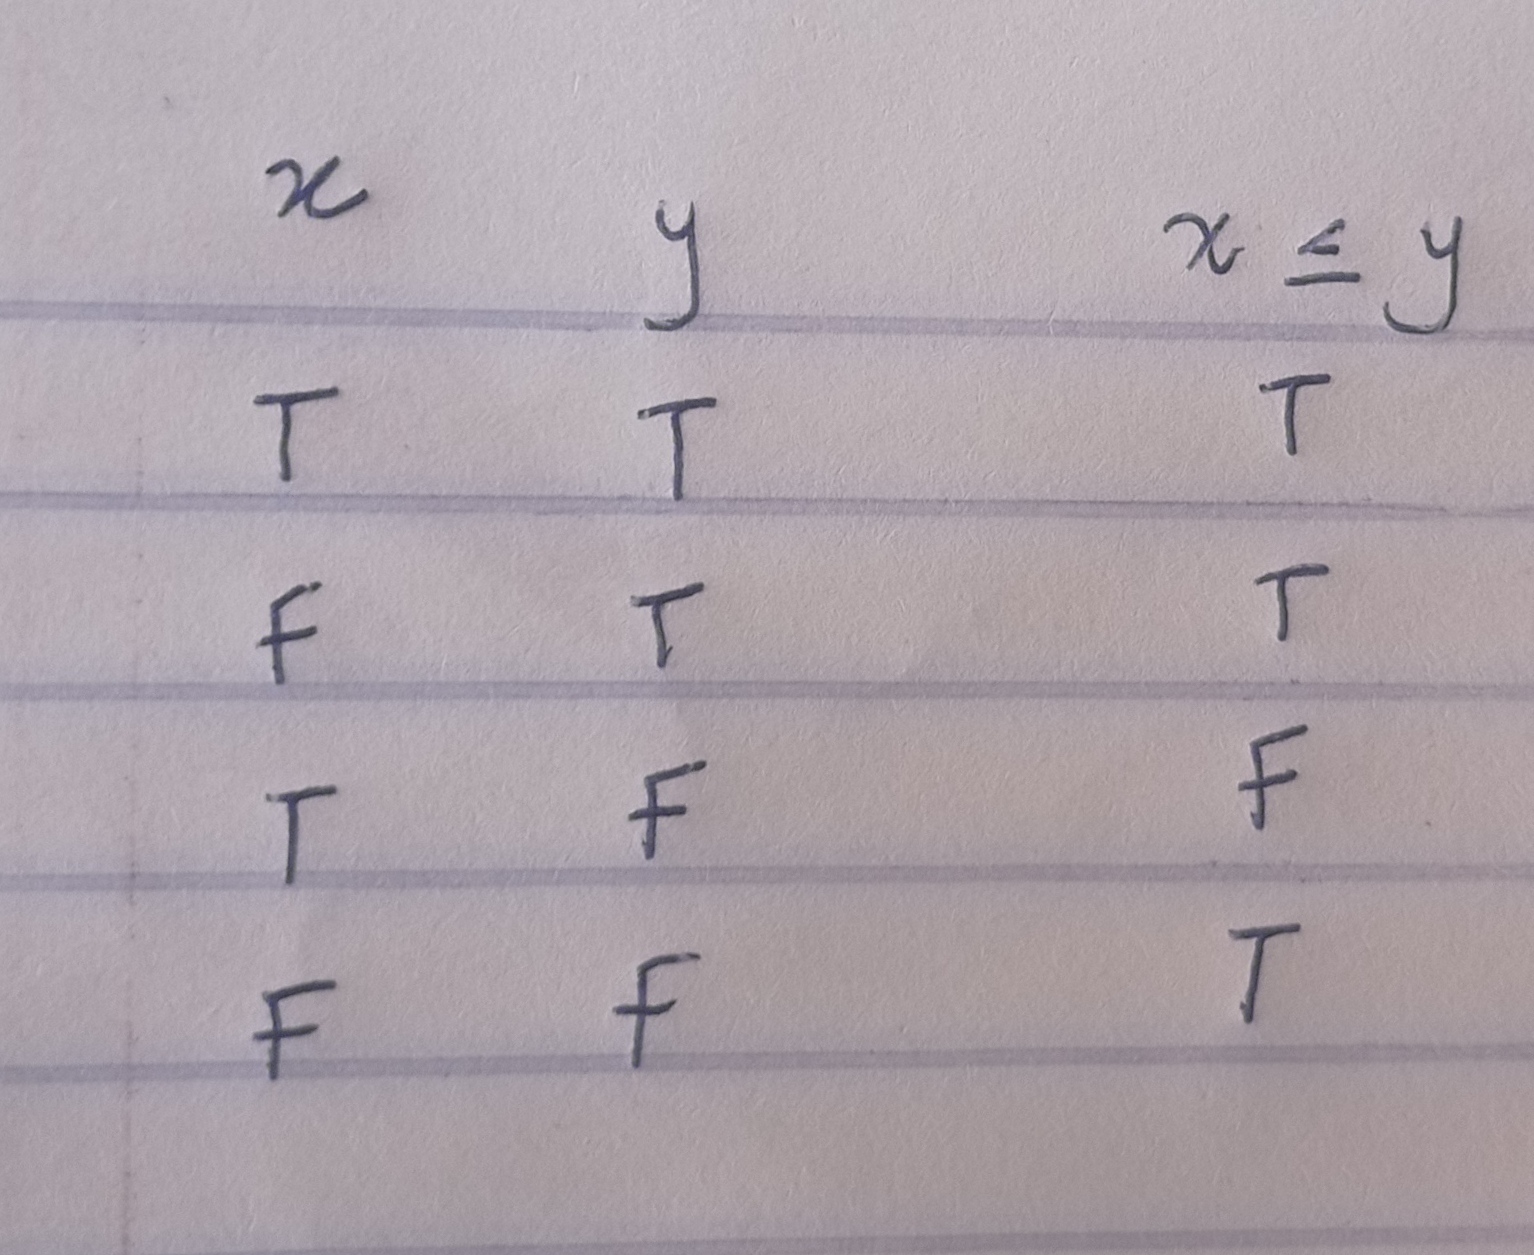 x y x ≤ y
T T T
F T T
T F F
F F T